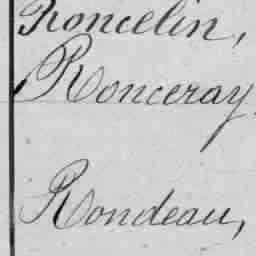 Roncelin,
Ronceray
Rondeau,